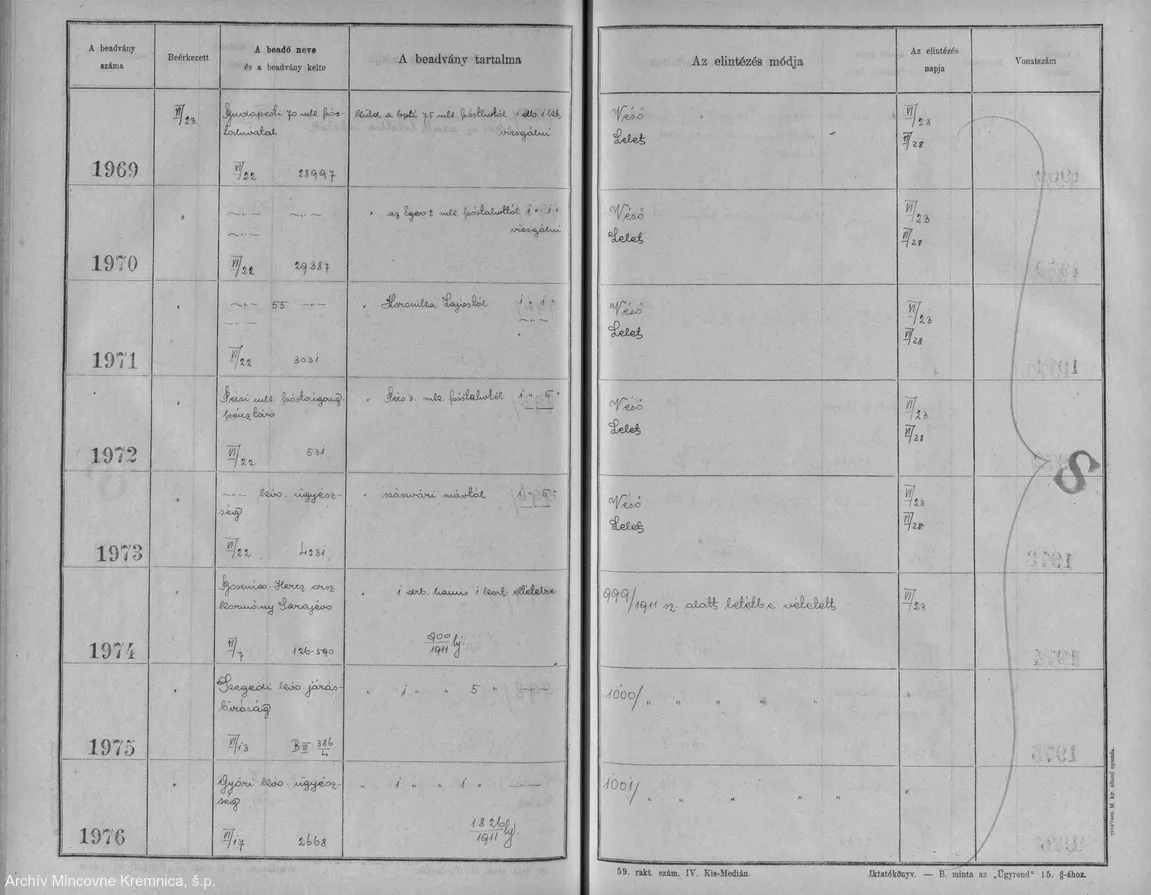 A beadvány
száma
Beérkezett
A beadó neve
és a beadvány kelte
A beadvány tartalma
Az elintézés módja
Az elintézés
napja
Vonatszám
1969
VI/23
Budapesti 70 mk. pós-
tahivatal
VI/22 28997
küld a bpti 75 mk. pósthtól 1 db 1 k
vizsgálni
Véső VI/23
Lelet VI/28
1970
VI/22 29387
" az Eger 2 mk. póstahottól 1 " 1 "
vizsgálni
Véső VI/23
Lelet VI/28
1971
55
VI/22 3031
Lajostól 1 " 1 "
Véső VI/23
Lelet VI/28
1972
Pécsi mk. póstaigazg.
pénztár
VI/22 531
" Pécs 3. mk. 1 " 5 "
Véső VI/23
Lelet VI/28
1973
kir. ügyész-
ség
VI/22 4231
" szászvári 1 " 5 "
Véső VI/23
Lelet VI/28
1974
Bosznia-Hercz. orsz.
kormány Sarajevo
VI/7 126.590
" 1 drb. hamis 1 kor. életetre
900/1911
999/1911 sz. alatt letétbe vétetett
VI/23
1975
Szegedi kir. járás-
bíróság
VI/13 B III 386/4
" 1 " " 5 "
1000/ " " " "
1976
Győri kir. ügyész-
ség
VI/17 2668
" 1 " " 1 "
1826/1911
1001/ " " " "
S
59. rakt. szám. IV. Kis-Medián.
Iktatókönyv. — B. minta az „Ügyrend" 15. §-ához.
Archív Mincovne Kremnica, š.p.